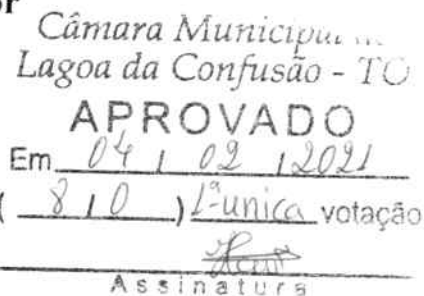 or
Câmara Municipal
Lagoa da Confusão - TO
APROVADO
Em 04 / 02 / 2021
( 8 / 0 ) 1ª unica votação
Assinatura